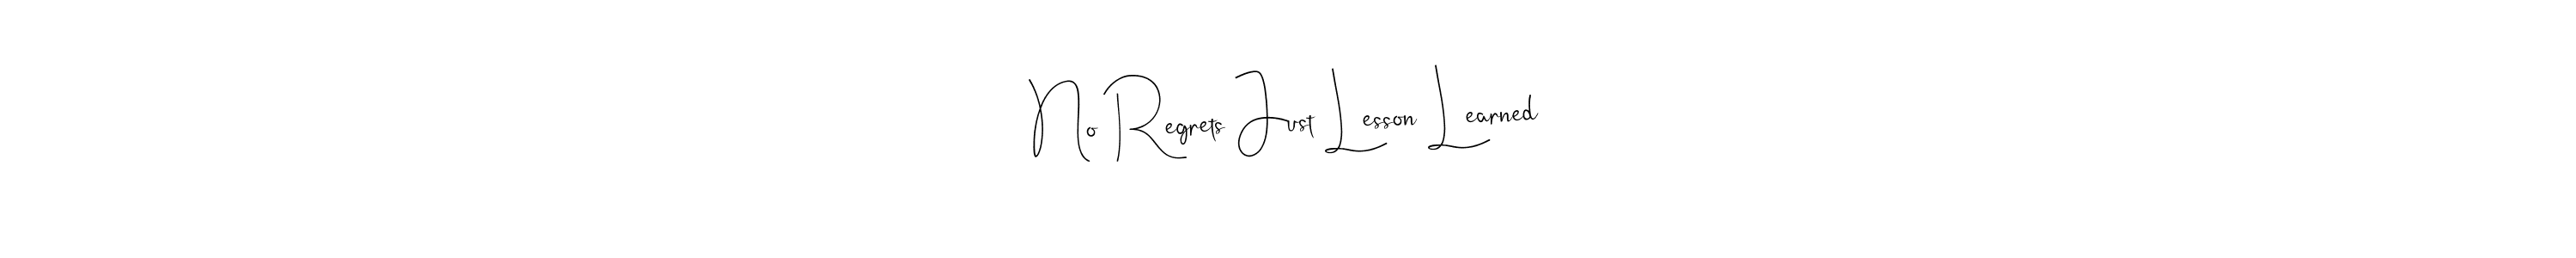 No Regrets Just Lesson Learned